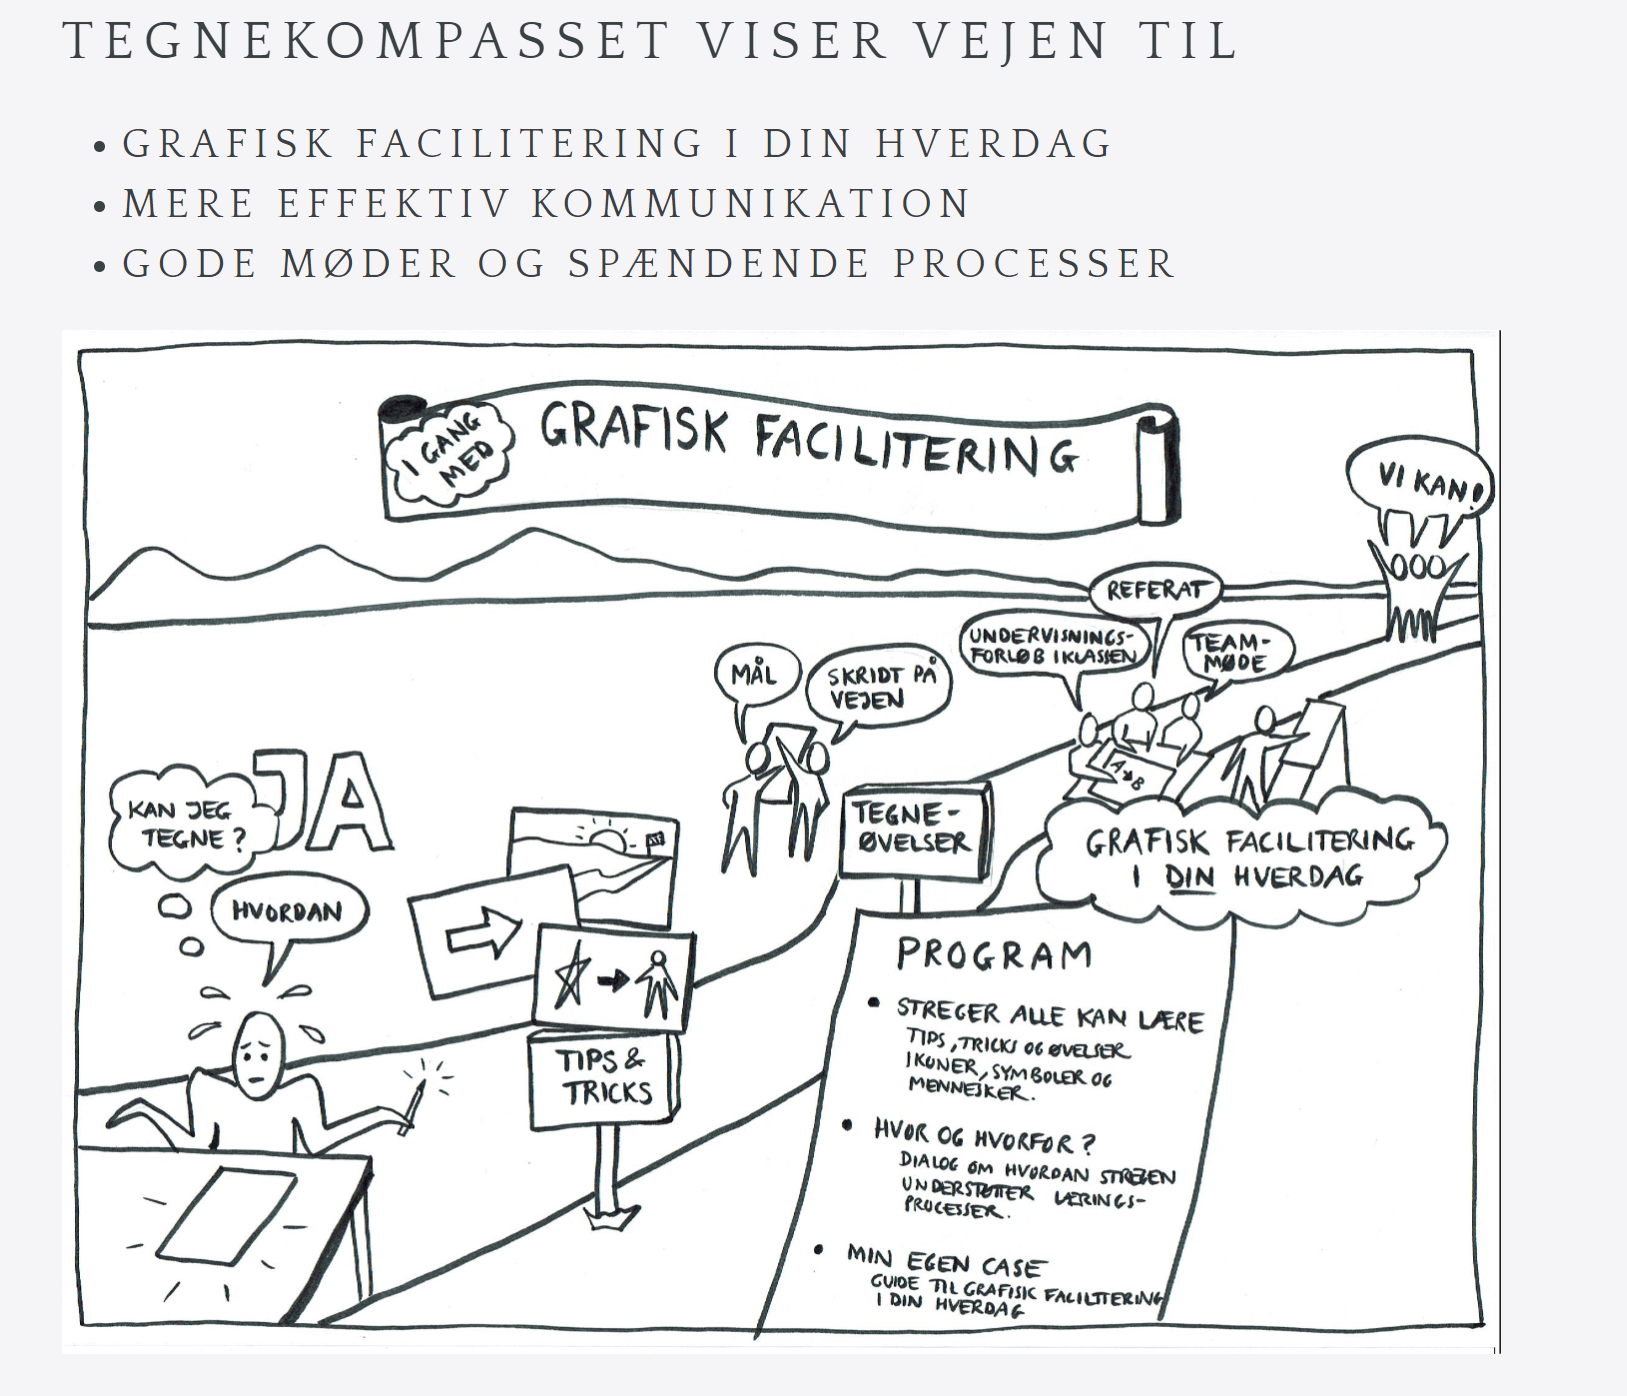 TEGNEKOMPASSET VISER VEJEN TIL
• GRAFISK FACILITERING I DIN HVERDAG
• MERE EFFEKTIV KOMMUNIKATION
• GODE MØDER OG SPÆNDENDE PROCESSER
I GANG
MED
GRAFISK FACILITERING
VI KAN!
REFERAT
UNDERVISNINGS-
FORLØB I KLASSEN
TEAM-
MØDE
MÅL
SKRIDT PÅ
VEJEN
A→B
JA
KAN JEG
TEGNE?
HVORDAN
TEGNE-
ØVELSER
GRAFISK FACILITERING
I DIN HVERDAG
TIPS &
TRICKS
PROGRAM
• STREGER ALLE KAN LÆRE
TIPS, TRICKS OG ØVELSER
IKONER, SYMBOLER OG
MENNESKER.
• HVOR OG HVORFOR?
DIALOG OM HVORDAN STREGEN
UNDERSTØTTER LÆRINGS-
PROCESSER.
• MIN EGEN CASE
GUIDE TIL GRAFISK FACILITERING
I DIN HVERDAG